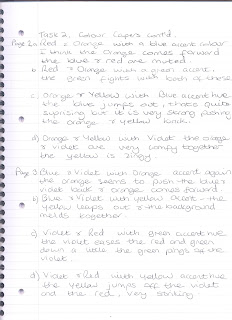 Task 2, Colour Capers cont'd.
Page 2a) Red & Orange with a blue accent colour
I think the Orange comes forward
the blue & red are muted.
b) Red & Orange with a green accent,
the green fights with both of these
c) Orange & Yellow with Blue accent hue
the blue jumps out, thats quite
suprising but its very strong pushing
the orange & yellow back.
d) Orange & Yellow with Violet the orange
& violet are very comfy together
the yellow is zingy.
Page 3 a) Blue & Violet with Orange accent again
the orange seems to push the blue &
violet back & orange comes forward.
b) Blue & Violet with yellow accent - the
yellow leaps out & the background
melds together.
c) Violet & Red with green accent hue
the violet eases the red and green
down a little the green pings off the
violet.
d) Violet & Red with yellow accent hue
the yellow jumps off the violet
and the red, very striking